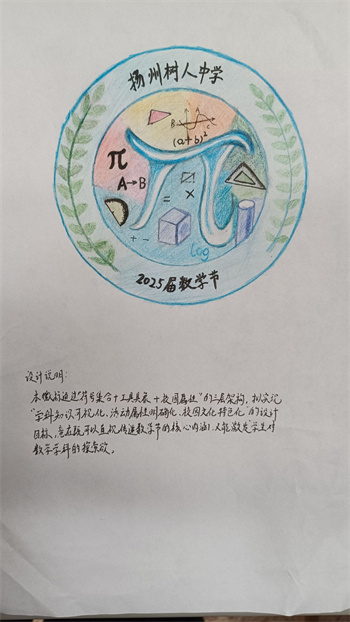 扬州树人中学
(a+b)²
π
A→B
=
×
+ -
log
2025届数学节
设计说明:
本徽标通过"符号集合+工具具象+校园属性"的三层架构,拟实现
"学科知识可视化、活动属性明确化、校园文化特色化"的设计
目标,意在既可以直观传递数学节的核心内涵,又能激发学生对
数学学科的探索欲。